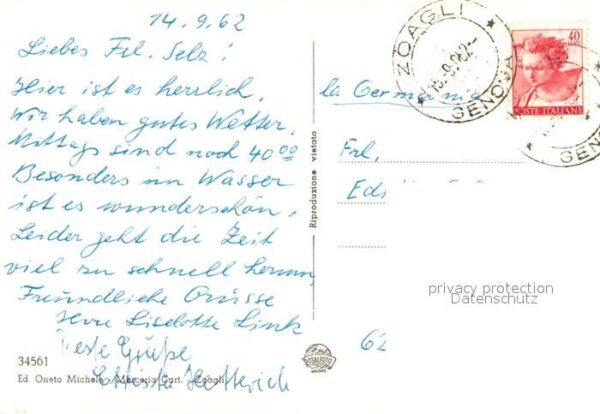 14.9.62
Liebes Frl. Selz!
Hier ist es herrlich,
Wir haben gutes Wetter,
Mittags sind noch 40°°
Besonders im Wasser
ist es wunderschön.
Leider geht die Zeit
viel zu schnell herum,
Freundliche Grüsse
Ihre Liselotte Link
Beste Grüße
Christa
34561
Ed. Oneto Michele - Merceria Cart. - Zoagli
Riproduzione vietata
TOTALFOTO
MILANO
ZOAGLI
GENOVA
40
LIRE
POSTE ITALIANE
GENO
la Germania
Frl.
Ed
62
privacy protection
Datenschutz